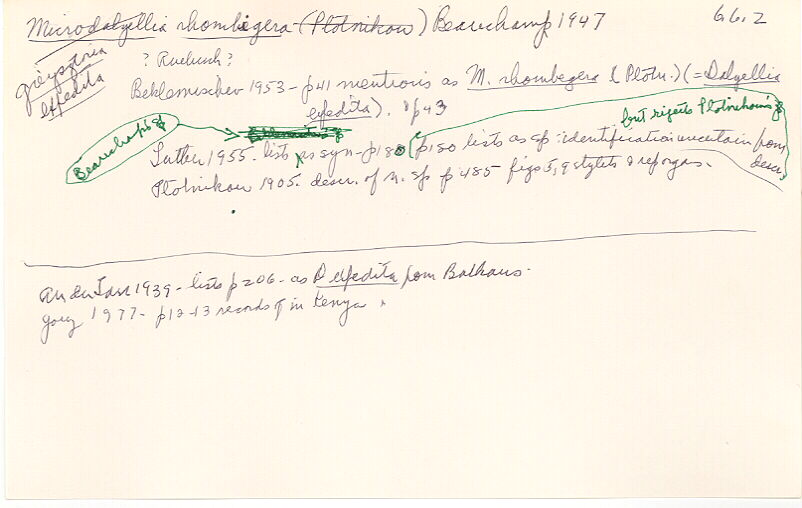 Microdalyellia rhombigera (Plotnikow) Beauchamp 1947
6.6.2
Gieysztoria
expedita
? Ruebush ?
Beklemischev 1953 - p 41 mentions as M. rhombegera (Plotn.) (= Dalyellia
expedita). p 43
but rejects Plotnikow's sp
Beauchamp's sp
Luther 1955. lists as syn - p 180 (p 180 lists as sp: identification uncertain from
descr.)
Plotnikow 1905. descr. of n. sp p 485 figs 5, 9 stylets & rep organs.
an der Lan 1939 - lists p 206 - as D expedita from Balkans.
1977 - p 12-13 records of in Kenya